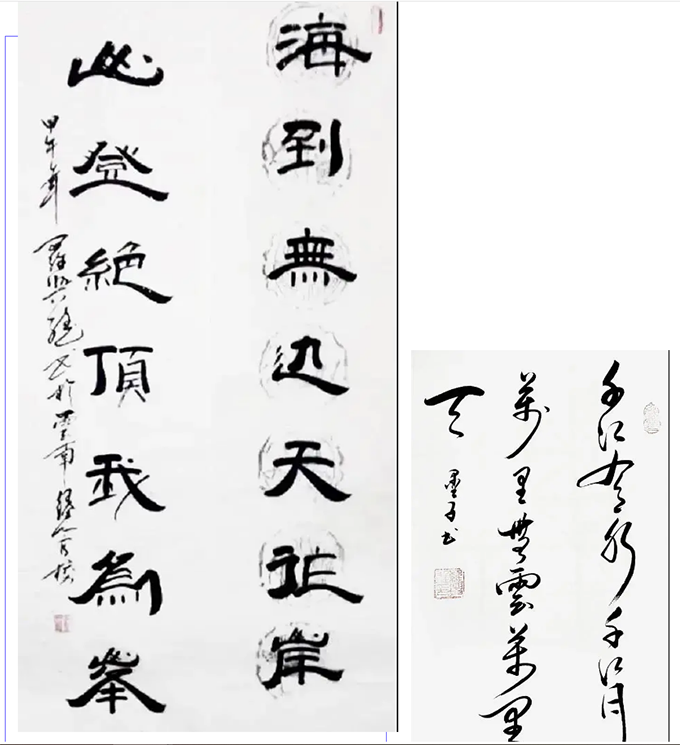 海到無边天作岸
山登絕頂我為峯
甲午年 羅興 书於雲南
千江有水千江月
萬里無雲萬里
天
墨子书